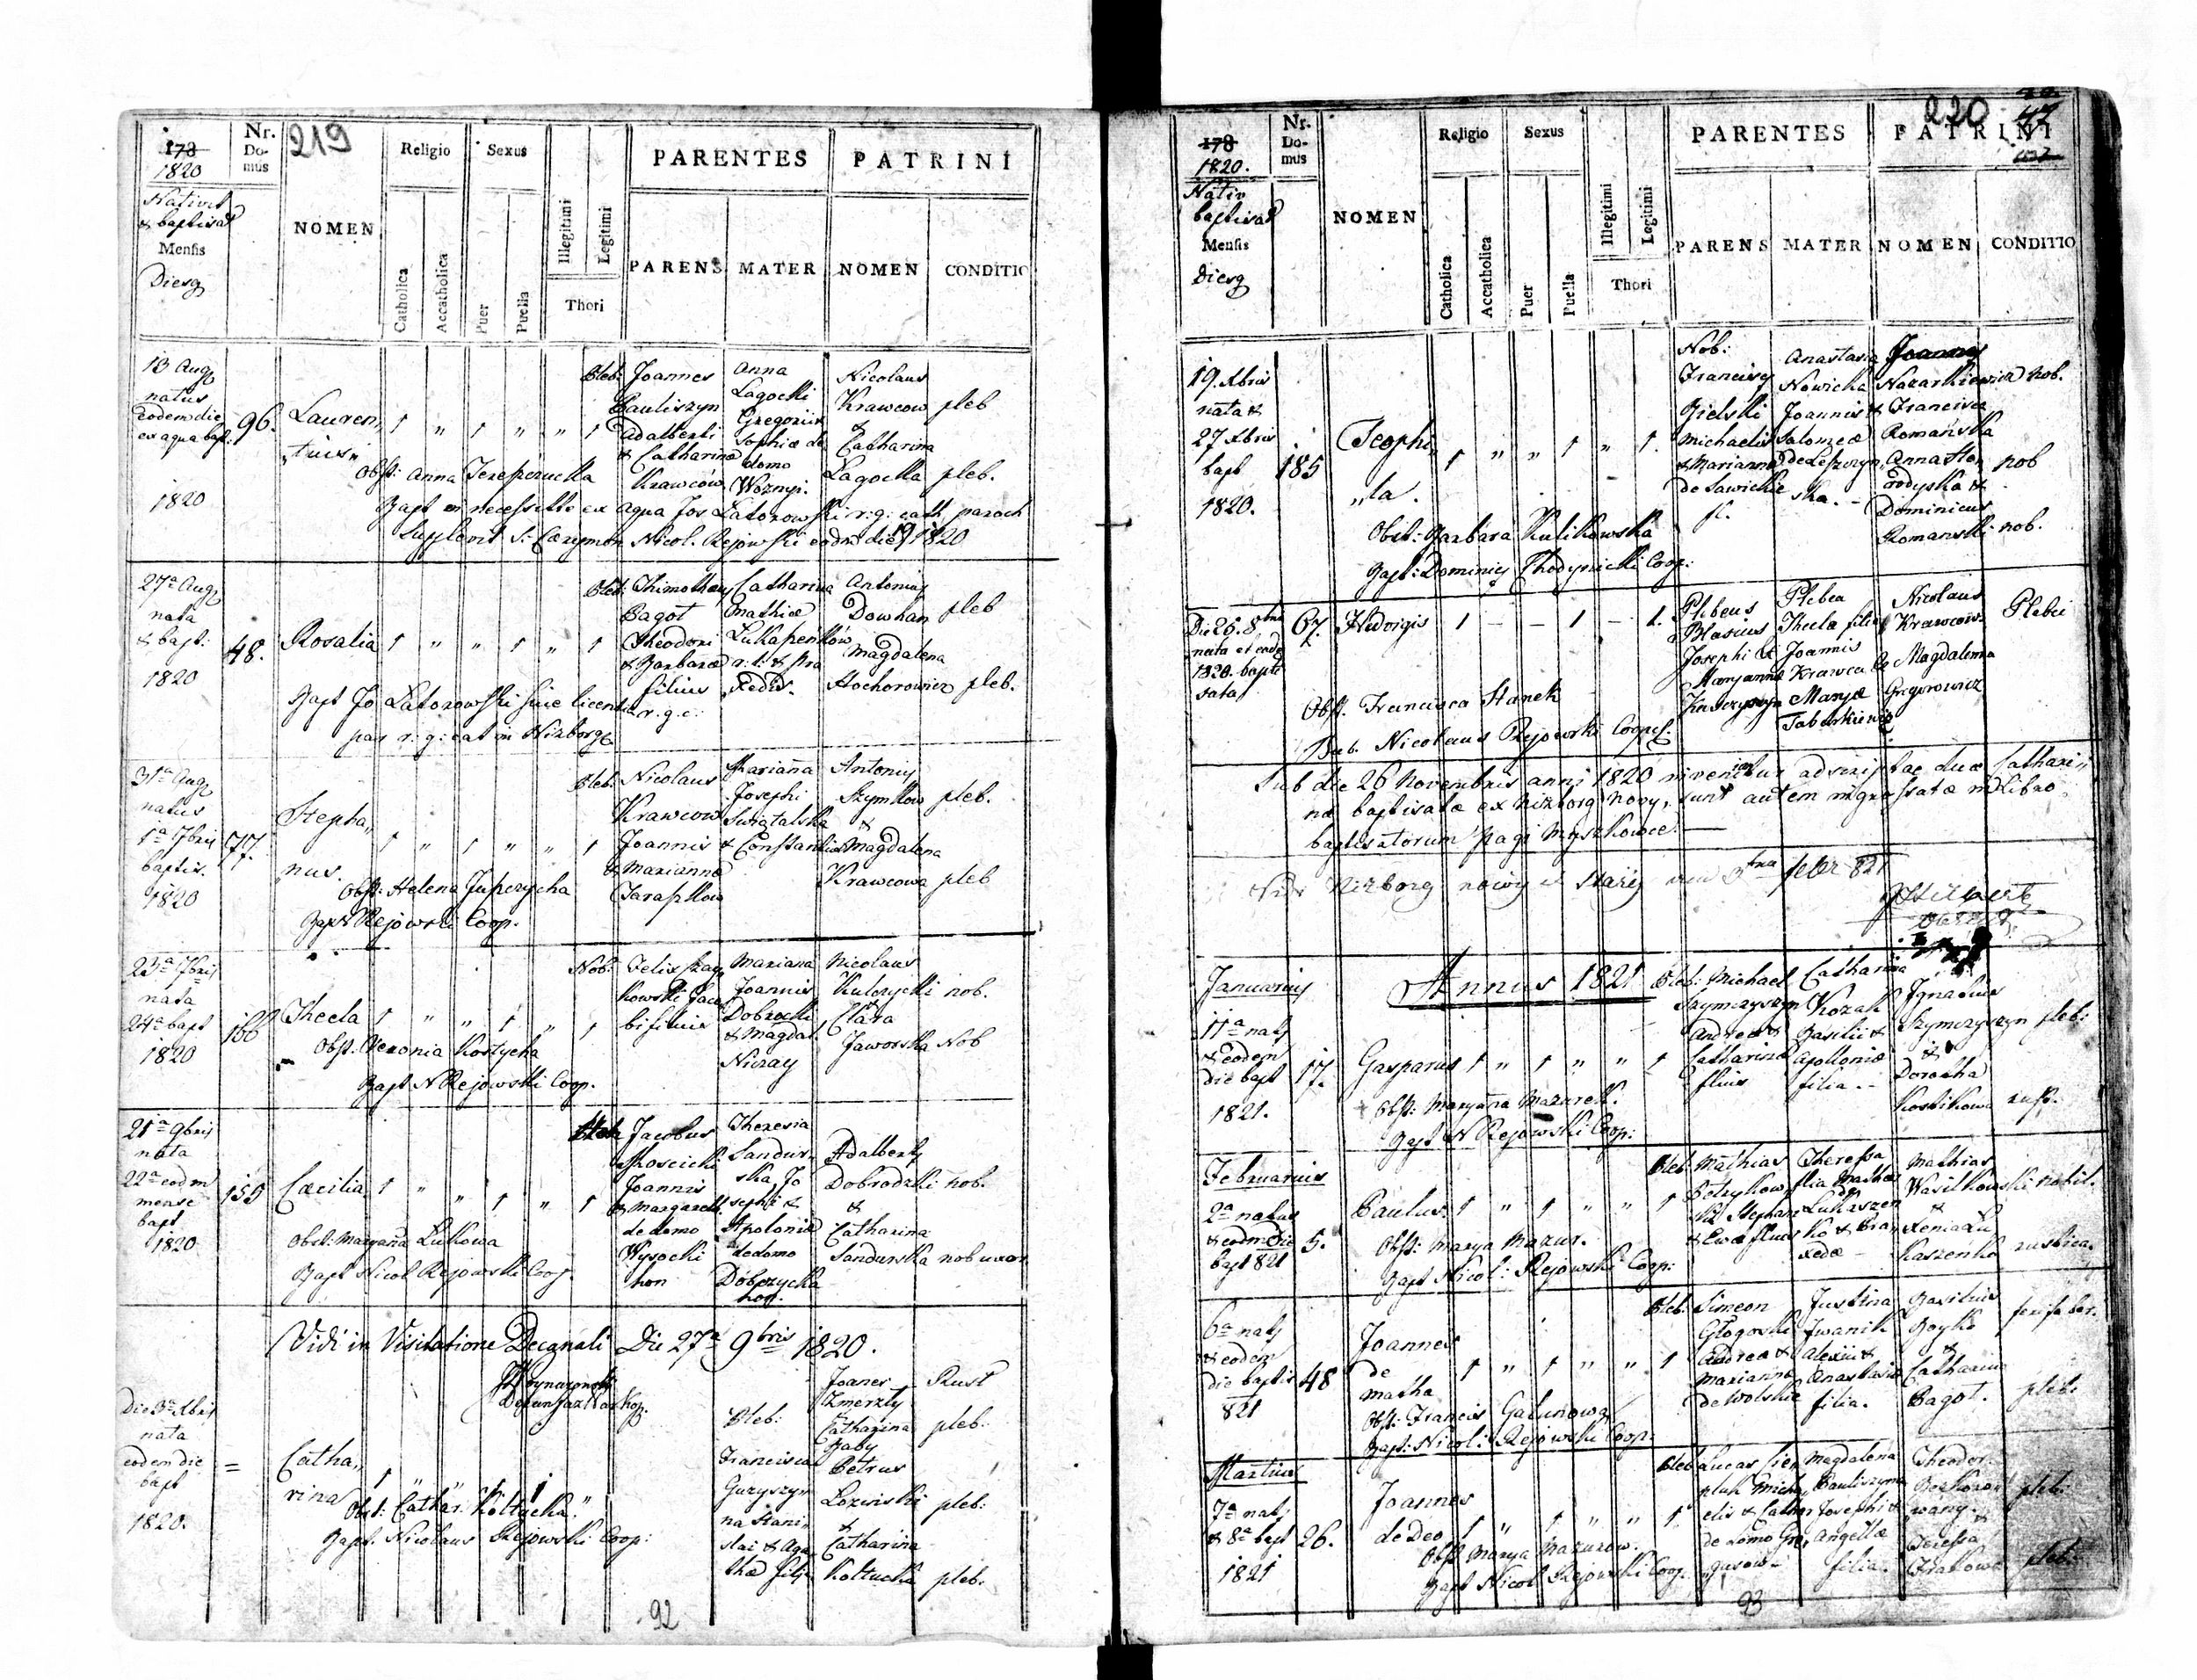 219
178
1820
Nr.
Do-
mus
Nativit
& baptisat
Mensis
Diesq
NOMEN
Religio
Catholica
Accatholica
Sexus
Puer
Puella
Illegitimi
Legitimi
Thori
PARENTES
PARENS
MATER
PATRINI
NOMEN
CONDITIO
13 Aug
natus
eodem die
ex aqua bapt:
1820
96.
Lauren„
„tius„
1 „ 1 „ „ 1
Pleb: Joannes
Pauliszyn
Adalberti
& Catharinæ
Krawców
Anna
Lagocki
Gregorii &
Sophiæ de
domo
Woznyi.
Nicolaus
Krawcow pleb
&
Catharina
Lagocka pleb.
Obst: Anna
Bapt in necessitte ex aqua Jos Latorowski r: g: cath paroch
Suplevit S: Cæremon Nicol. Rejowski eodm die 1820
27a Aug
nata
& bapt:
1820
48.
Rosalia
1 „ „ 1 „ 1
Pleb: Thimotheus
Bagot
Theodori
& Barbaræ
filius
r. g. c.
Catharina
Mathiæ
Lukaszeńków
r. l. & Pra
xedis.
Antonius
Dowhan pleb
Magdalena
Hochorowicz pleb.
Bapt Jo Latorowski sine licentia
par r: g: cat in Nizborg
31a Aug
natus
1a 7bris
baptis.
1820
77.
Stepha„
nus.
1 „ 1 „ „ 1
Pleb. Nicolaus
Krawcow
Joannis
& Mariannæ
Taraszkow
Marianna
Josephi
Swiątalska
& Constantiæ
Antonius
Szymkow pleb.
&
Magdalena
Krawcowa pleb
Obst: Helena Juszczycha
Bapt N Rejowski Coop.
23a 7bris
nata
24a bapt
1820
166
Thecla
1 „ „ 1 „ 1
Nob: Felix
kowski Jaco
bi filius
Mariana
Joannis
Dobrocki
& Magdal.
Nizay
Nicolaus
Kulczycki nob.
&
Clara
Jaworska Nob
Obst. Xeronia Kostycha
Bapt N Rejowski Coop.
21a 9bris
nata
22a eodm
mense
bapt
1820
155
Cæcilia
1 „ „ 1 „ 1
Jacobus
Moscicki
Joannis
& Margareth.
de domo
Wysocki
hon
Theresia
Sandur„
ska Jo
sephi &
Apolonia
de domo
Dobrzycka
hon.
Adalbert
Dobrodzki nob.
&
Catharina
Sandurska nob uxor
Obst: Maryana Lukowa
Bapt Nicol Rejowski Coop
Vidi in Visitatione Decanali Die 27a 9bris 1820.
Die 3a Xbris
nata
eodem die
bapt
1820.
=
Catha„
rina
1 „ „ 1 1 „
Pleb:
Francisca
Guzyszyn
na Stani„
slai & Aga
thæ filia
Joanes Rust
Zmerzly
Catharina pleb:
Baby
Petrus
Lozinski pleb:
&
Catharina
Koltucka pleb.
Obst: Cathar. Koltycka.
Bapt. Nicolaus Rejowski Coop:
92
220
178
1820.
Nr.
Do-
mus
Nativ
baptisat
Mensis
Diesq
NOMEN
Religio
Catholica
Accatholica
Sexus
Puer
Puella
Illegitimi
Legitimi
Thori
PARENTES
PARENS
MATER
PATRINI
NOMEN
CONDITIO
19. Xbris
nata &
27 Xbris
bapt
1820.
185
Teophi„
„la.
1 „ „ 1 „ 1.
Nob:
Franciscus
Bielski
Michaelis
& Marianna
de Sawickie
fl.
Anastasia
Nowicka
Joannis &
Salomeæ
de Leszczyń„
ska. -
Joannes
Nazarkiewicz nob.
Francisca
Romańska
Anna Ho„ nob
rodyska &
Dominicus
Romanski nob.
Obst: Barbara Kulikowska
Bapt: Dominicus Chodynicki Coop:
Die 26. 8bris
nata et ead
1820. bapti
sata
67.
Hedvigis
1 - - 1 - 1.
Plebeus
Blasius
Josephi &
Maryannæ
Plebea
Thecla filia
Joannis
Krawca &
Maryæ
Taborkiewicz
Nicolaus
Krawców
Magdalena
Gregorowicz
Plebei
Obst. Francisca Hanek
Bap. Nicolaus Rejowski Coop.
Sub die 26 Novembris anni 1820 inveniuntur adscriptae duæ Cathari„
næ baptisatæ ex Nizborg Nowy, sunt autem ingrossatæ in Libro
baptisatorum pagi Myszkowce. —
Vidi Nizborg nowy et Stary febr 821
Januarius
Annus 1821
11a nats
& eodem
die bapt
1821.
17.
Gasparus
1 „ 1 „ „ 1
Pleb: Michael
Szymczyszyn
Andreæ &
Catharinæ
filius
Catharina
Kozak
Basilii &
Apolloniæ
filia. -
Ignatius
Szymczyszyn pleb:
&
Dorotha
Kostikowa rust.
Obst: Maryana Mazurek.
Bapt N Rejowski Coop:
Februarius
2a natus
& eodm Die
bapt 821
5.
Paulus.
1 „ 1 „ „ 1
Pleb: Mathias
Petrykow
ski Stephani
& Evæ filius
Theressa
filia Mathiæ
de Lukaszen
ko & Pra„
xedæ -
Mathias
Wasilkowski nobil.
&
Xenia Lu
kaszenko rustica.
Obst: Marya Mazur.
Bapt Nicol: Rejowski Coop:
6a nats
& eodem
die baptis
821
48
Joannes
de
Matha
1 „ 1 „ „ 1
Pleb: Simeon
Głogowski
Andreæ &
Mariannæ
de Wolskie
Justina
Iwanik
Alexii &
Anastasiæ
filia.
Basilius
Boyko
&
Catharina
Bagot. pleb:
Obst: Francis Galunowa
Bapt: Nicol: Rejowski Coop:
Martius
7a nats
& 8a bapt
1821
26.
Joannes
de Deo
1 „ 1 „ „ 1
Pleb Lucas
elis & Cathar
de domo Gre„
gusow -
Magdalena
Pauliszyna
Josephi &
Angellæ
filia.
Theodor
&
Teressa
pleb:
pleb:
Obst Marya Mazurow.
Bapt Nicol Rejowski Coop.
93